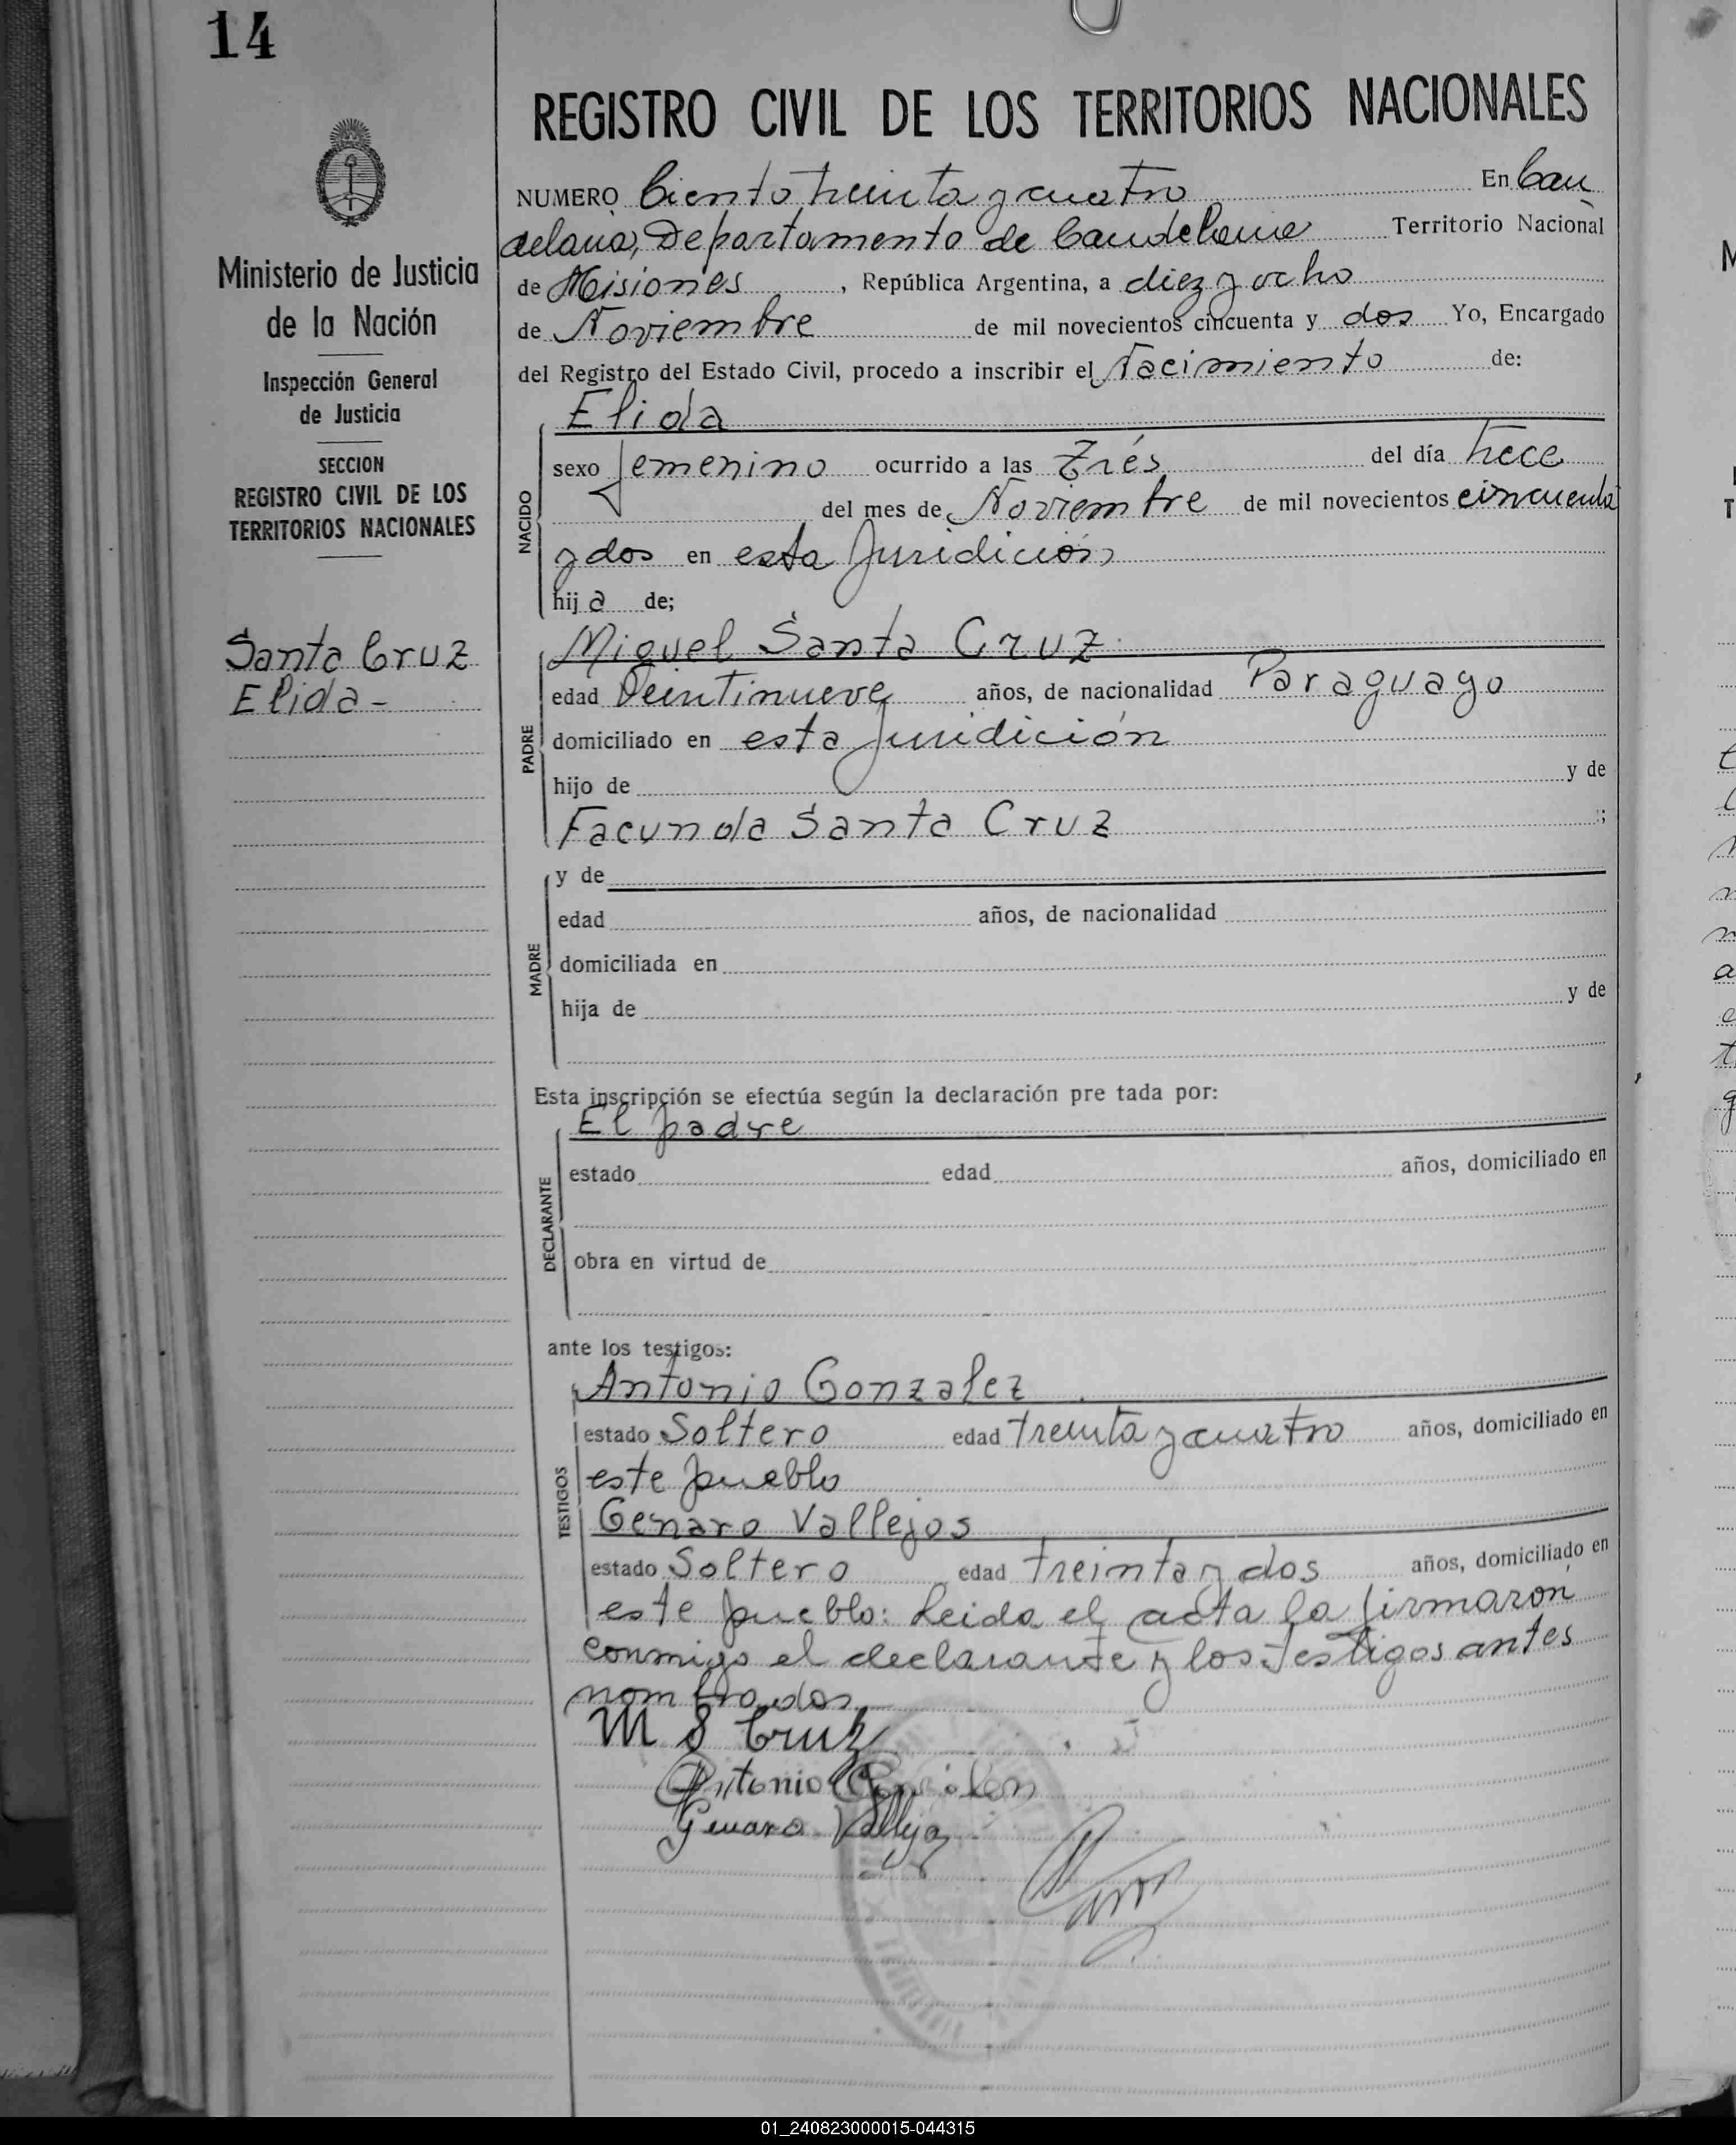 14
REGISTRO CIVIL DE LOS TERRITORIOS NACIONALES
NUMERO Ciento treinta y cuatro En Can
delaria, Departamento de Candelaria Territorio Nacional
de Misiones, República Argentina, a diez y ocho
de Noviembre de mil novecientos cincuenta y dos Yo, Encargado
del Registro del Estado Civil, procedo a inscribir el Nacimiento de:
Elida
sexo femenino ocurrido a las Trés del día trece
del mes de Noviembre de mil novecientos cincuenta
y dos en esta Juridición,
hija de;
NACIDO
Miguel Santa Cruz
edad Veintinueve años, de nacionalidad Paraguayo
domiciliado en esta Juridición
hijo de y de
Facunda Santa Cruz ;
PADRE
y de
edad años, de nacionalidad
domiciliada en
hija de y de
MADRE
Esta inscripción se efectúa según la declaración pre tada por:
El padre
estado edad años, domiciliado en
obra en virtud de
DECLARANTE
ante los testigos:
Antonio Gonzalez
estado Soltero edad treinta y cuatro años, domiciliado en
este pueblo
Genaro Vallejos
estado Soltero edad treinta y dos años, domiciliado en
este pueblo: Leida el acta la firmaron
conmigo el declarante y los testigos antes
nombrados
TESTIGOS
M S Cruz
Antonio
Genaro Vallejo
Ministerio de Justicia
de la Nación
Inspección General
de Justicia
SECCION
REGISTRO CIVIL DE LOS
TERRITORIOS NACIONALES
Santa Cruz
Elida -
01_240823000015-044315